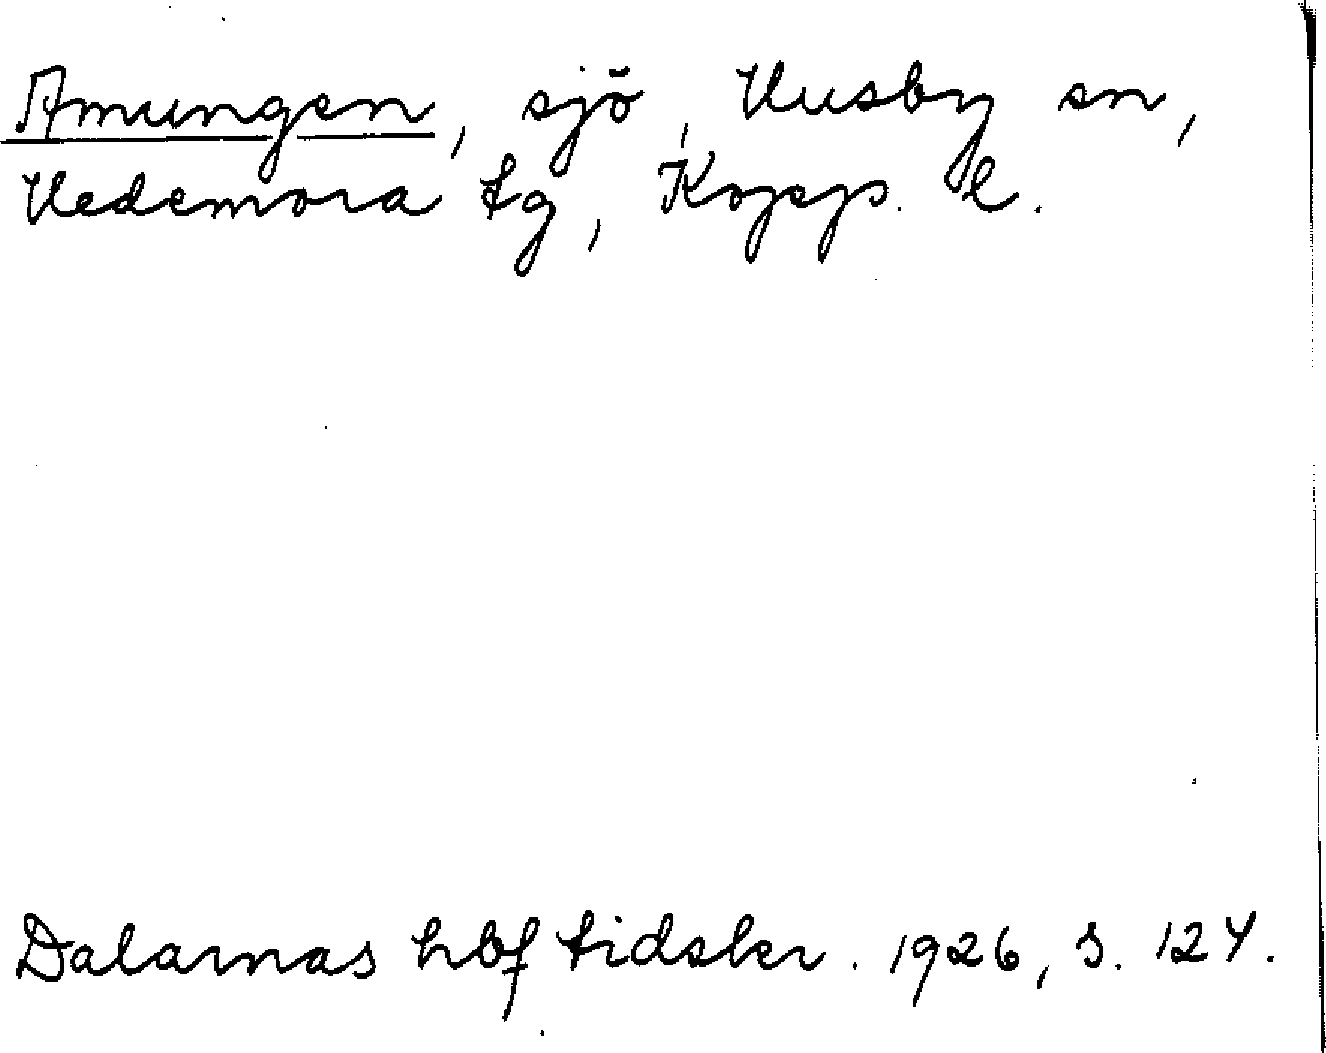 Amungen, sjö, Husby sn,
Hedemora tg, Kopp. l.
Dalarnas hbf tidskr. 1926, s. 124.